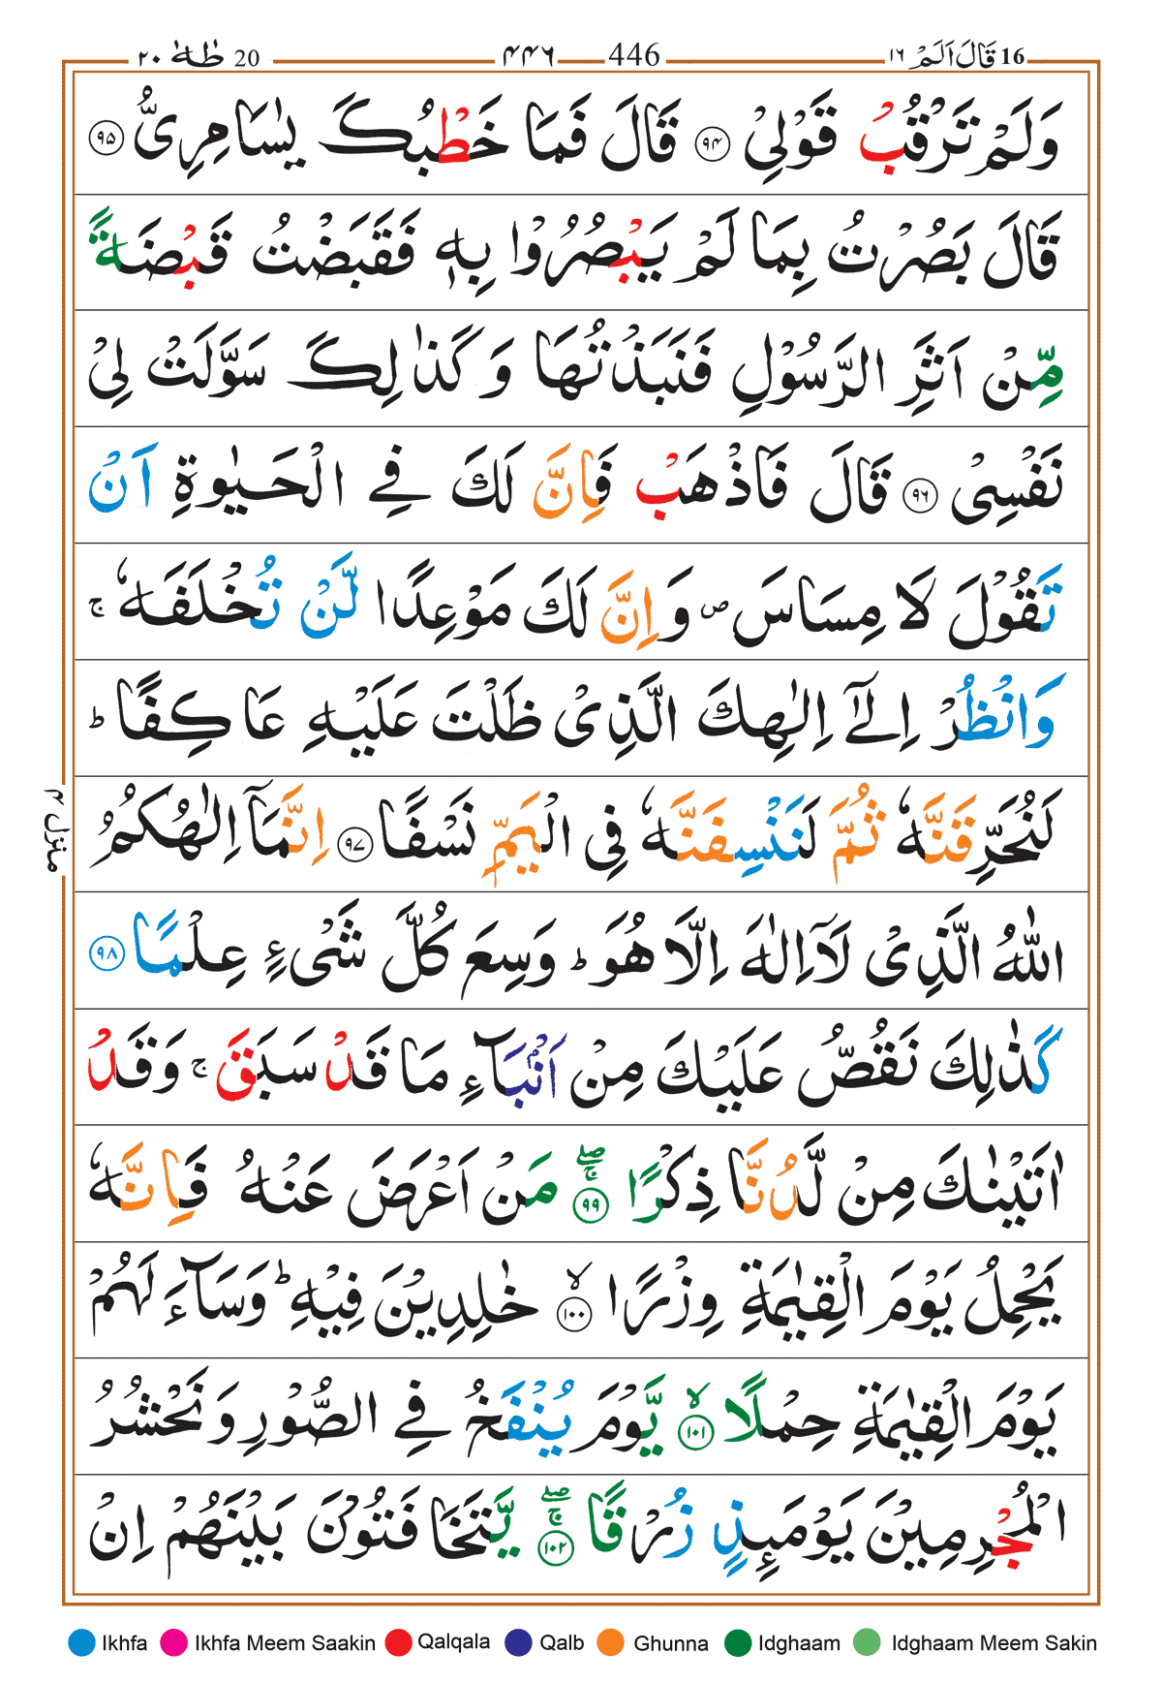 16 قَالَ اَلَمْ ١٦ 446 ۴۴۶ 20 طٰهٰ ٢٠
وَلَمْ تَرْقُبْ قَوْلِيْ ﴿۹۴﴾ قَالَ فَمَا خَطْبُكَ يٰسَامِرِيُّ ﴿۹۵﴾
قَالَ بَصُرْتُ بِمَا لَمْ يَبْصُرُوْا بِهٖ فَقَبَضْتُ قَبْضَةً
مِّنْ اَثَرِ الرَّسُوْلِ فَنَبَذْتُهَا وَكَذٰلِكَ سَوَّلَتْ لِيْ
نَفْسِيْ ﴿۹۶﴾ قَالَ فَاذْهَبْ فَاِنَّ لَكَ فِي الْحَيٰوةِ اَنْ
تَقُوْلَ لَا مِسَاسَ ۖ وَاِنَّ لَكَ مَوْعِدًا لَّنْ تُخْلَفَهٗ ۚ
وَانْظُرْ اِلٰٓى اِلٰهِكَ الَّذِيْ ظَلْتَ عَلَيْهِ عَاكِفًا ؕ
لَنُحَرِّقَنَّهٗ ثُمَّ لَنَنْسِفَنَّهٗ فِي الْيَمِّ نَسْفًا ﴿۹۷﴾ اِنَّمَآ اِلٰهُكُمُ
اللّٰهُ الَّذِيْ لَآ اِلٰهَ اِلَّا هُوَ ؕ وَسِعَ كُلَّ شَيْءٍ عِلْمًا ﴿۹۸﴾
كَذٰلِكَ نَقُصُّ عَلَيْكَ مِنْ اَنْۢبَآءِ مَا قَدْ سَبَقَ ۚ وَقَدْ
اٰتَيْنٰكَ مِنْ لَّدُنَّا ذِكْرًا ۖۚ ﴿۹۹﴾ مَنْ اَعْرَضَ عَنْهُ فَاِنَّهٗ
يَحْمِلُ يَوْمَ الْقِيٰمَةِ وِزْرًا ۙ ﴿۱۰۰﴾ خٰلِدِيْنَ فِيْهِ ؕ وَسَآءَ لَهُمْ
يَوْمَ الْقِيٰمَةِ حِمْلًا ۙ ﴿۱۰۱﴾ يَّوْمَ يُنْفَخُ فِي الصُّوْرِ وَنَحْشُرُ
الْمُجْرِمِيْنَ يَوْمَئِذٍ زُرْقًا ۖۚ ﴿۱۰۲﴾ يَّتَخَافَتُوْنَ بَيْنَهُمْ اِنْ
منزل ۴
Ikhfa Ikhfa Meem Saakin Qalqala Qalb Ghunna Idghaam Idghaam Meem Sakin